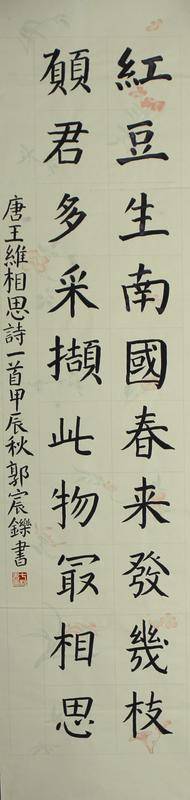 紅豆生南國春来發幾枝
願君多采擷此物冣相思
唐王維相思詩一首甲辰秋郭宸鑠書